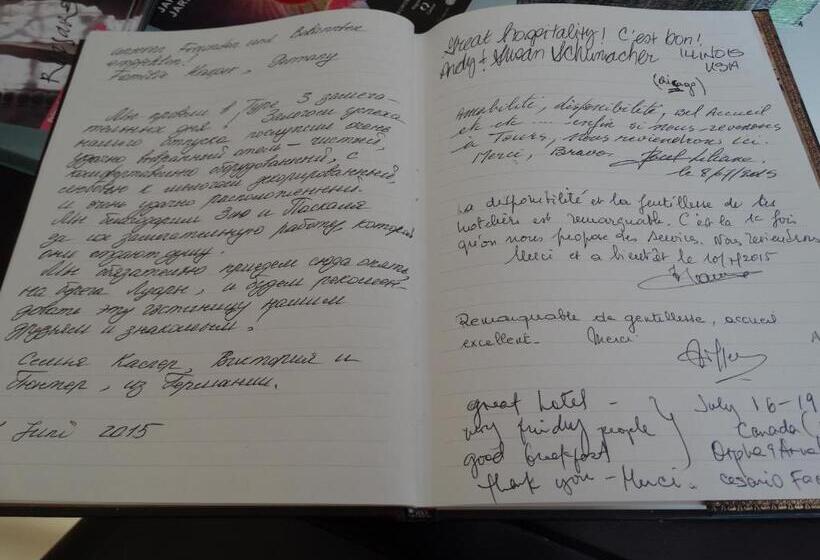 unseren Freunden und Bekannten
empfehlen!
Familie Kasper, Germany
Мы провели в Туре 3 замеча-
тельных дня! Залогом успеха
нашего отпуска послужил очень
удачно выбранный отель - чистый,
комфортно оборудованный, с
любовью к мелочам декорированный,
и очень удачно расположенный.
Мы благодарим Элю и Паскаля
за их замечательную работу, которой
они отдают душу.
Мы обязательно приедем сюда опять,
на берега Луары, и будем рекомен-
довать эту гостиницу нашим
друзьям и знакомым!
Семья Каспер, Виктория и
Гюнтер, из Германии.
Juni 2015
Great hospitality! C'est bon!
Andy + Susan Schumacher
ILLINOIS
USA
(Chicago)
Amabilité, disponibilité, bel Accueil
etc etc .... enfin si nous revenons
à Tours, nous reviendrons ici.
Merci, Bravo
le 8/7/2015
La disponibilité et la gentillesse de les
hôteliers est remarquable. C'est la 1e fois
qu'on nous propose des services. Nous reviendrons
Merci et a bientôt le 10/7/2015
Remarquable de gentillesse, accueil
excellent. Merci
great hotel - July 16-19
very friendly people Canada
good breakfast Orpha &
thank you - Merci. Cesario